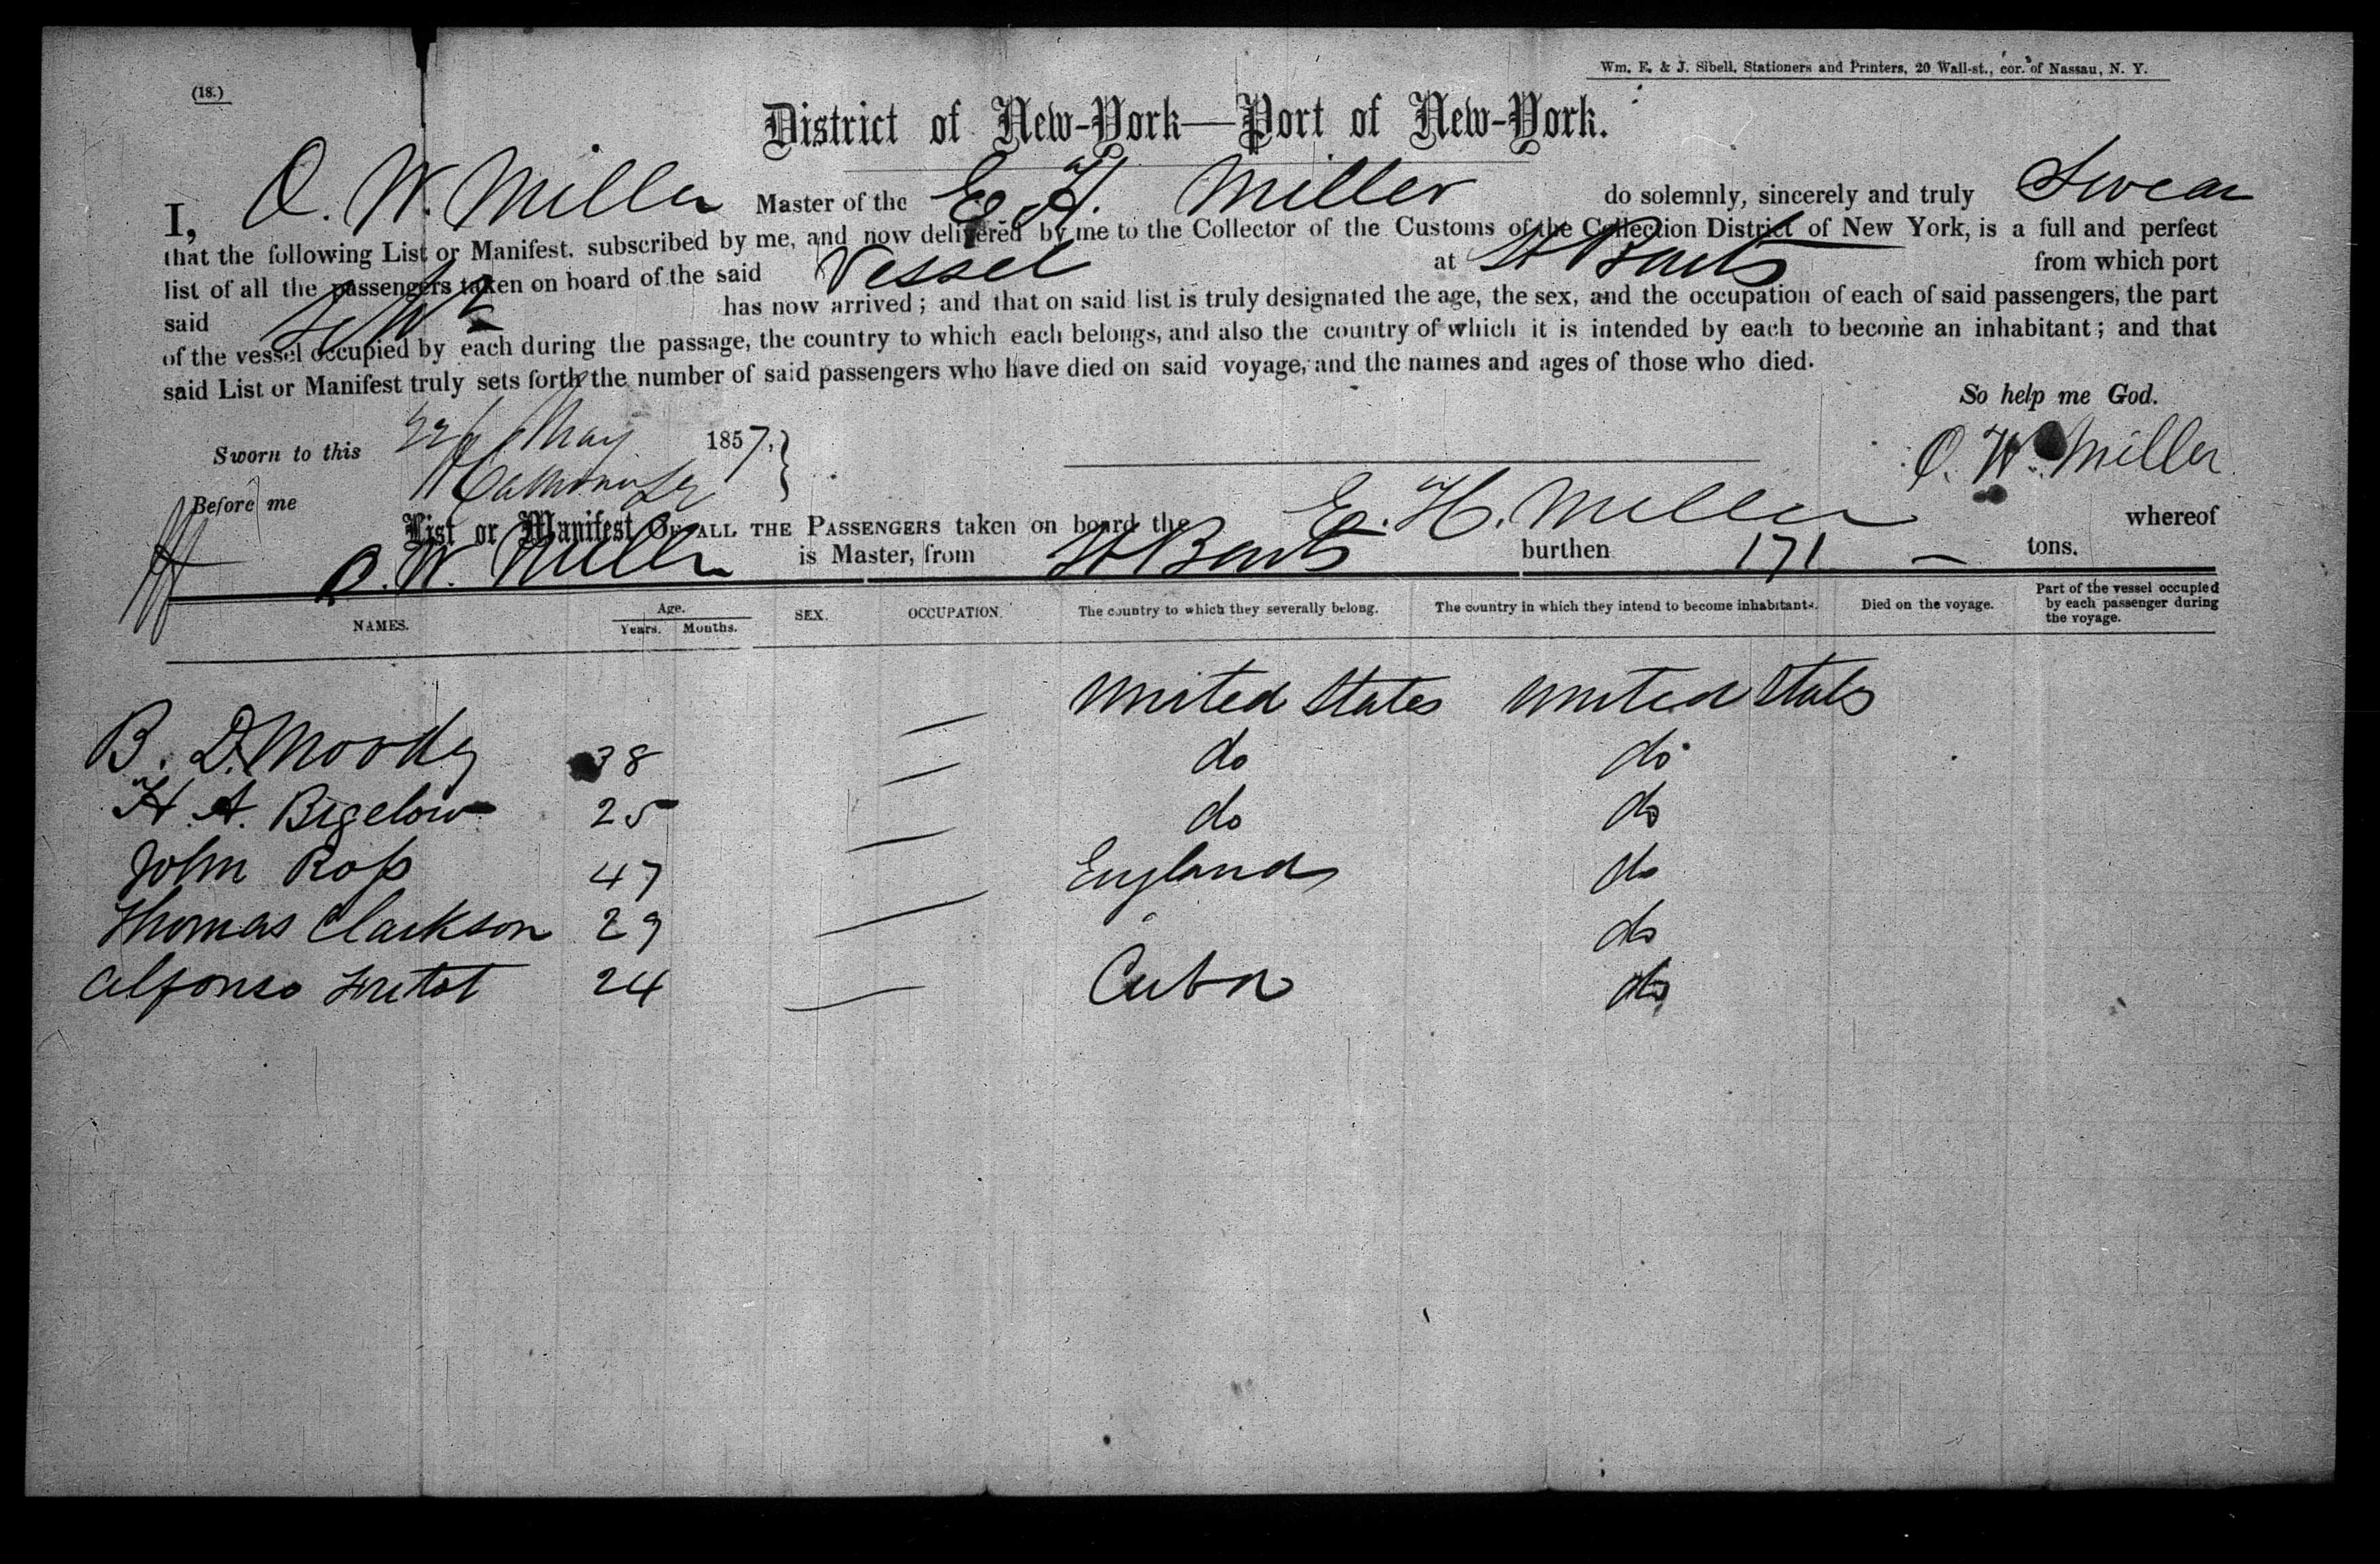 Wm. E. & J. Sibell, Stationers and Printers, 20 Wall-st., cor. of Nassau, N. Y.
(18.)
District of New-York—Port of New-York.
I, O. W. Miller Master of the E. H. Miller do solemnly, sincerely and truly Swear
that the following List or Manifest, subscribed by me, and now delivered by me to the Collector of the Customs of the Collection District of New York, is a full and perfect
list of all the passengers taken on board of the said Vessel at St Barts from which port
said has now arrived; and that on said list is truly designated the age, the sex, and the occupation of each of said passengers, the part
of the vessel occupied by each during the passage, the country to which each belongs, and also the country of which it is intended by each to become an inhabitant; and that
said List or Manifest truly sets forth the number of said passengers who have died on said voyage, and the names and ages of those who died.
So help me God.
Sworn to this 22 May 1857,
O. W. Miller
Before me
List or Manifest OF ALL THE PASSENGERS taken on board the E. H. Miller whereof
O. W. Miller is Master, from St Barts burthen 171 — tons.
NAMES. Age. Years. Months. SEX. OCCUPATION. The country to which they severally belong. The country in which they intend to become inhabitants. Died on the voyage. Part of the vessel occupied by each passenger during the voyage.
B. D. Moody 38 — United States United States
H. A. Bigelow 25 — do do
John Ross 47 — do do
Thomas Clarkson 29 — England do
do
Alfonso 24 — Cuba do